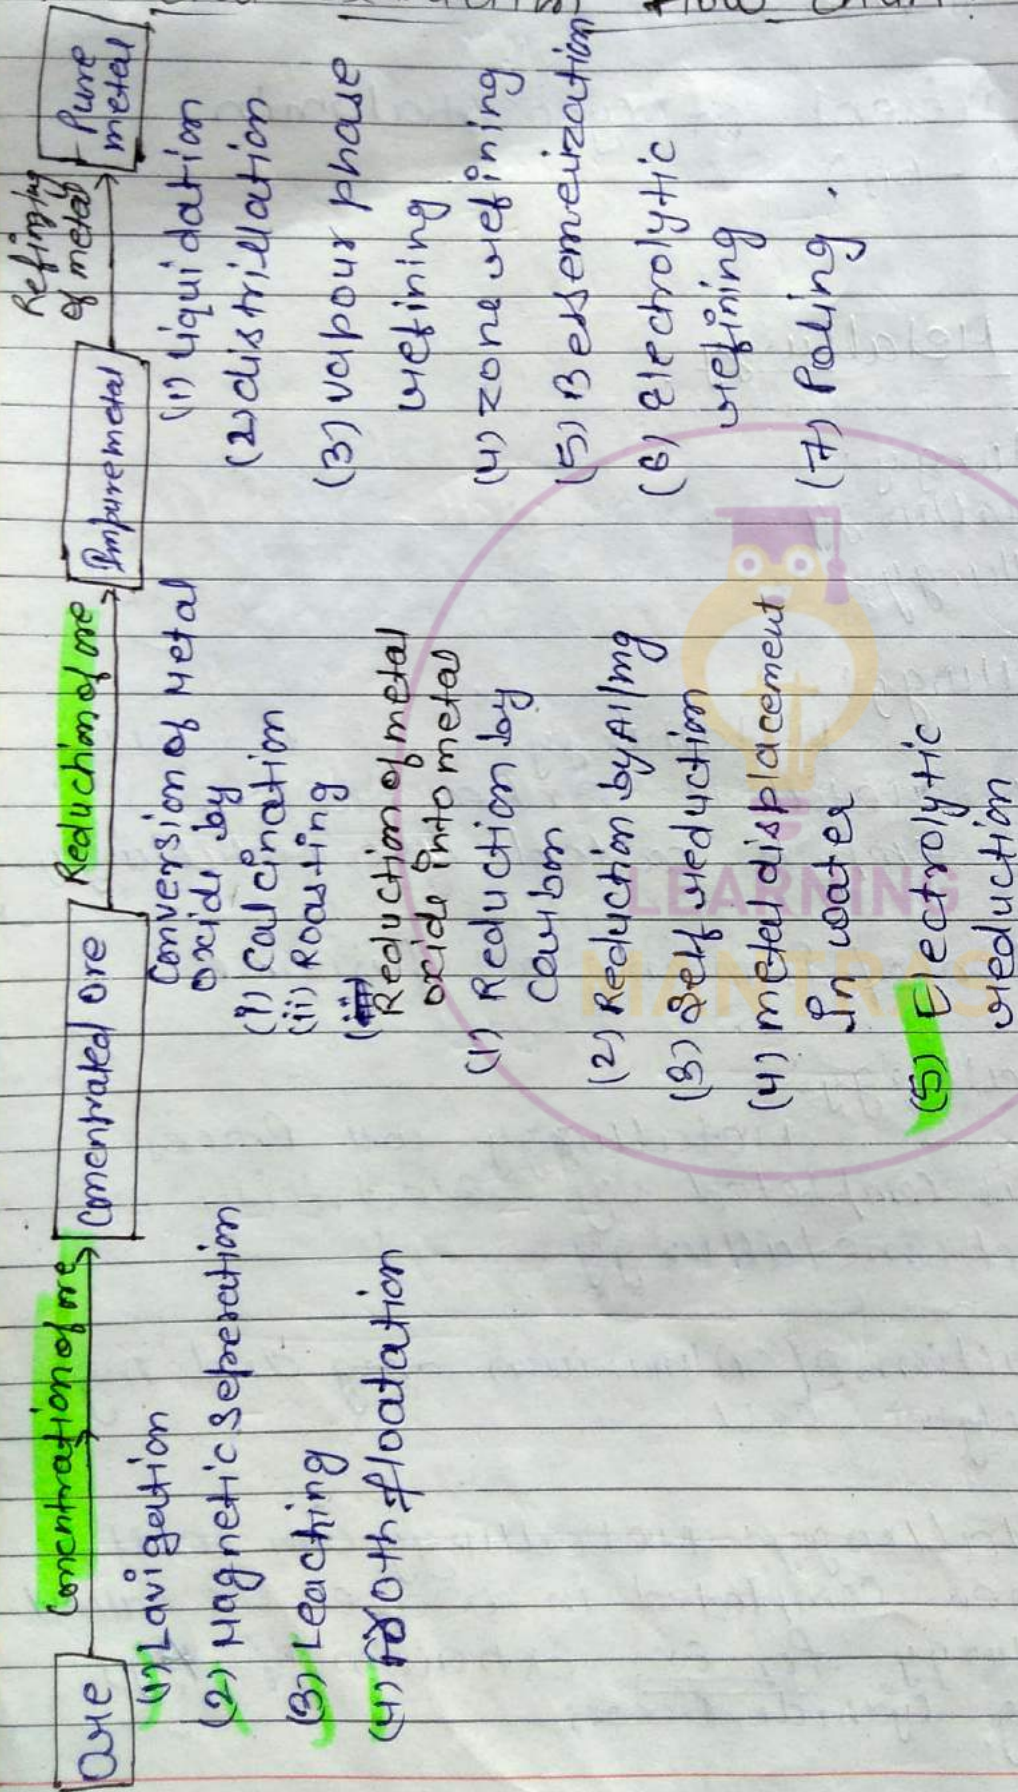 Flow Chart
Ore
Concentration of ore
Concentrated ore
Reduction of ore
Impure metal
Refining
of metal
Pure
metal
(1) Lavigation
(2) Magnetic Seperation
(3) Leaching
(4) Froth floatation
Conversion of Metal
oxide by
(i) Calcination
(ii) Roasting
(iii)
Reduction of metal
oxide into metal
(1) Reduction by
Carbon
(2) Reduction by Al/mg
(3) Self reduction
(4) metal displacement
In water
(5) Electrolytic
reduction
(1) Liquidation
(2) distrillation
(3) vapour phase
refining
(4) zone refining
(5) Bessemerization
(6) Electrolytic
refining
(7) Poling.
LEARNING
MANTRAS